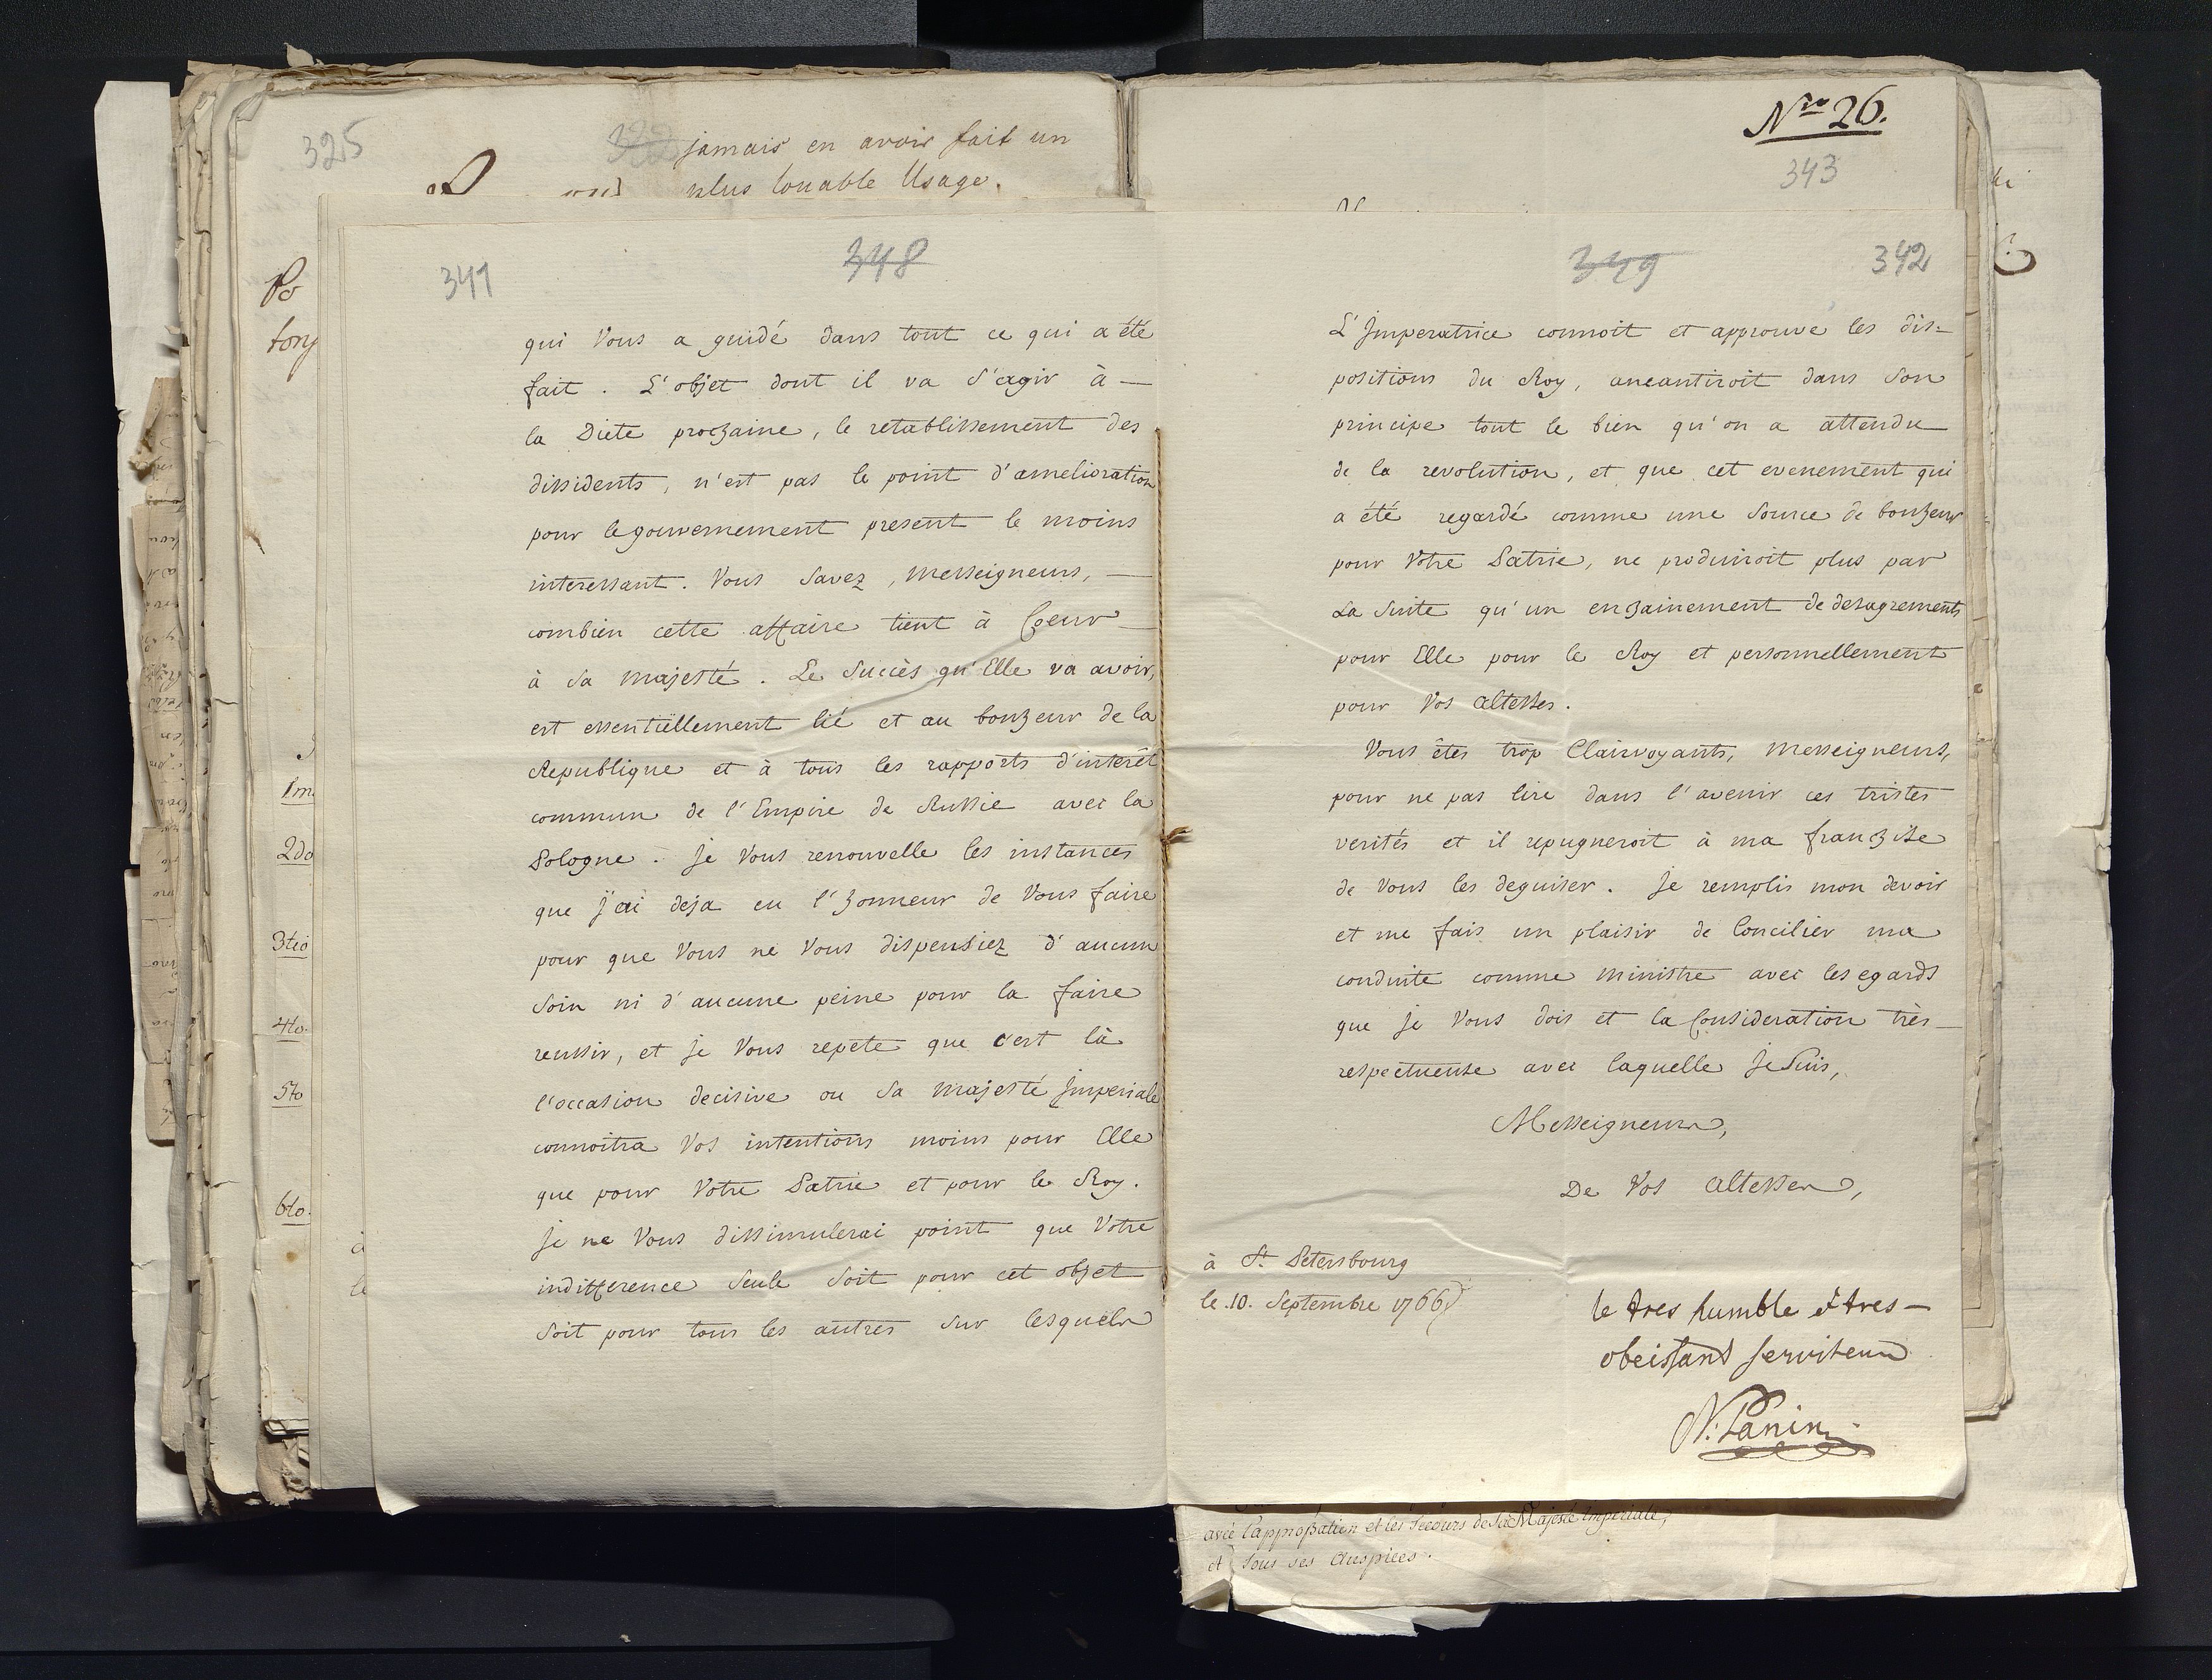 325
jamais en avoir fait un
plus louable Usage.
Nro 26.
343
Po
tory
1m
2do
3tio
4to.
5to
6to.
341
348
qui Vous a guidé dans tout ce qui a été
fait. L'objet dont il va s'agir à —
la Diete prochaine, le retablissement des
dissidents, n'est pas le point d'amelioration
pour le gouvernement present le moins
interessant. Vous savez, Messeigneurs, —
combien cette affaire tient à Coeur —
à Sa Majesté. Le Succès qu'Elle va avoir,
est essentiëllement lié et au bonheur de la
Republique et à tous les rapports d'interêt
commun de l'Empire de Russie avec la
Pologne. Je Vous renouvelle les instances
que j'ai deja eu l'honneur de Vous faire
pour que Vous ne Vous dispensiez d'aucun
soin ni d'aucune peine pour la faire
reussir, et je Vous repete que c'est là
l'occasion decisive ou Sa Majesté Imperiale
connoitra Vos intentions moins pour Elle
que pour Votre Patrie et pour le Roy.
Je ne Vous dissimulerai point que Votre
indifference seule soit pour cet objet
soit pour tous les autres sur lesquels
349
342
L'Imperatrice connoit et approuve les dis=
positions du Roy, aneantiroit dans son
principe tout le bien qu'on a attendu
de la revolution, et que cet evenement qui
a été regardé comme une Source de bonheur
pour Votre Patrie, ne produiroit plus par
la Suite qu'un enchainement de desagrements
pour Elle pour le Roy et personnellement
pour Vos Altesses.
Vous êtes trop Clairvoyants, Messeigneurs,
pour ne pas lire dans l'avenir ces tristes
verités et il repugneroit à ma franchise
de Vous les deguiser. Je remplis mon devoir
et me fais un plaisir de Concilier ma
conduite comme Ministre avec les egards
que je Vous dois et la Consideration très —
respectueuse avec laquelle je Suis,
Messeigneurs,
De Vos Altesses,
à St. Petersbourg
le 10. Septembre 1766
le tres humble et tres —
obeissant serviteur
N: Panin
avec l'approbation et les Secours de Sa Majesté Imperiale,
et Sous ses Auspices.